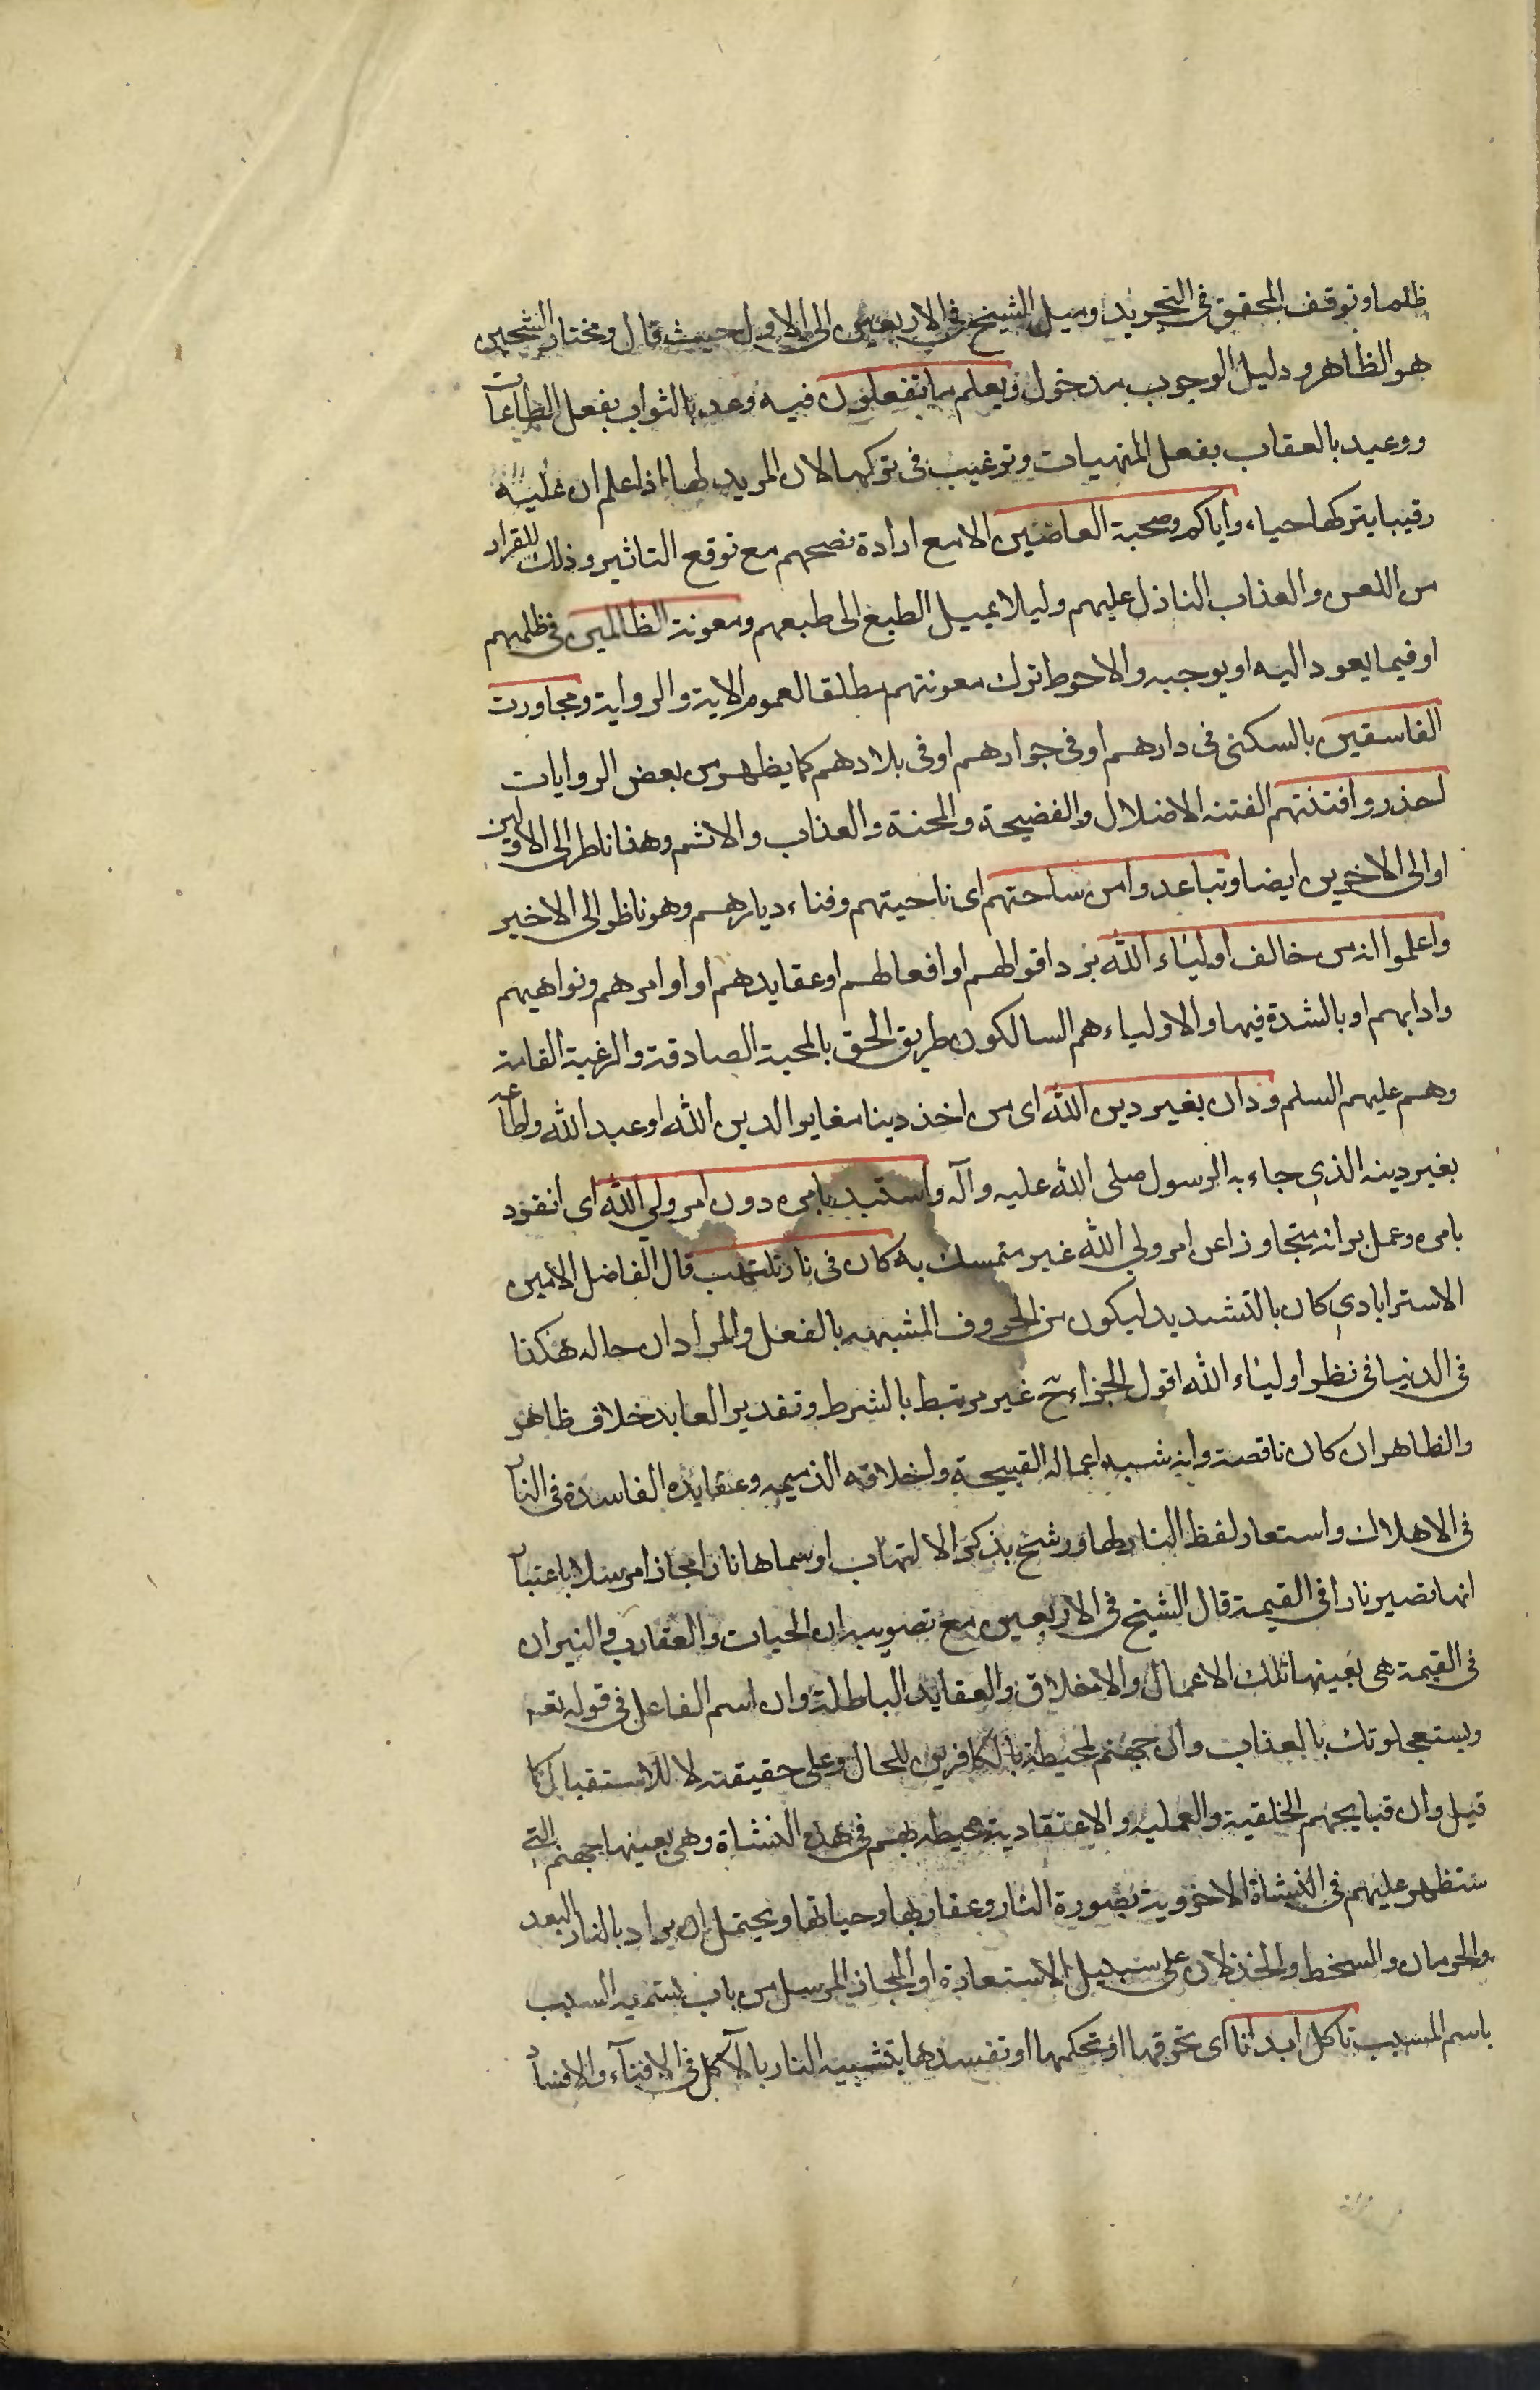 ظلما وتوقف المحقق في التجريد وميل الشيخ في الاربعين الى الاول حيث قال ومختار الشيخين
هو الظاهر ودليل الوجوب مدخول ويعلم ما تفعلون فيه وعد بالثواب بفعل الطاعات
ووعيد بالعقاب بفعل المنهيات وترغيب في تركها لان المريد لها اذا علم ان عليه
رقيبا يتركها حياء واياكم وصحبة العاصين الا مع ارادة نصحهم مع توقع التاثير وذلك للفرار
من اللعن والعذاب النازل عليهم وليلا يميل الطبع الى طبعهم ومعونة الظالمين في ظلمهم
او فيما يعود اليه او يوجبه والاحوط ترك معونتهم مطلقا لعموم الاية والرواية ومجاورت
الفاسقين بالسكنى في دارهم او في جوارهم او في بلادهم كما يظهر من بعض الروايات
احذروا فتنتهم الفتنه الاضلال والفضيحة والمحنة والعذاب والاثم وهذا ناظر الى الاولين
او الى الاخيرين ايضا وتباعدوا من ساحتهم اى ناحيتهم وفناء ديارهم وهو ناظر الى الاخير
واعلموا انه من خالف اولياء الله برد اقوالهم او افعالهم او عقايدهم او اوامرهم ونواهيهم
وادابهم او بالشدة فيها والاولياء هم السالكون طريق الحق بالمحبة الصادقة والرغبة التامة
وهم عليهم السلم ودان بغير دين الله اى من اخذ دينا مغايرا لدين الله او عبد الله واطاعه
بغير دينه الذي جاء به الرسول صلى الله عليه وآله واستبد بامره دون امر ولي الله اى انفرد
بامره وعمل برائه متجاوزا عن امر ولي الله غير متمسك به كان في نار تلتهب قال الفاضل الامين
الاسترابادي كان بالتشديد ليكون من الحروف المشبهه بالفعل والمراد ان حاله هكذا
في الدنيا في نظر اولياء الله اقول الجزاء ح غير مرتبط بالشرط وتقدير العايد خلاف ظاهر
والظاهر ان كان ناقصة وانه شبه اعماله القبيحة واخلاقه الذميمه وعقايده الفاسدة في النار
في الاهلاك واستعار لفظ النار لها ورشح بذكر الالتهاب او سماها نارا مجازا مرسلا باعتبار
انها تصير نارا في القيمة قال الشيخ في الاربعين مع تصويب ان الحيات والعقارب والنيران
في القيمة هى بعينها تلك الاعمال والاخلاق والعقايد الباطلة وان اسم الفاعل في قوله تعه
ويستعجلونك بالعذاب وان جهنم لمحيطة بالكافرين للحال وعلى حقيقته لا للاستقبال كما
قيل وان قبايحهم الخلقية والعمليه والاعتقادية محيطه بهم في هذه النشاة وهى بعينها جهنم التي
ستظهر عليهم في النشاة الاخروية بصورة النار وعقاربها وحياتها ويحتمل ان يراد بالنار البعد
والحرمان والسخط والخذلان على سبيل الاستعارة او المجاز المرسل من باب تسميه السبب
باسم المسبب تاكل ابدانا اى تحرقها او تحكمها او تفسدها بتشبيه النار بالآكل في الافناء والافساد